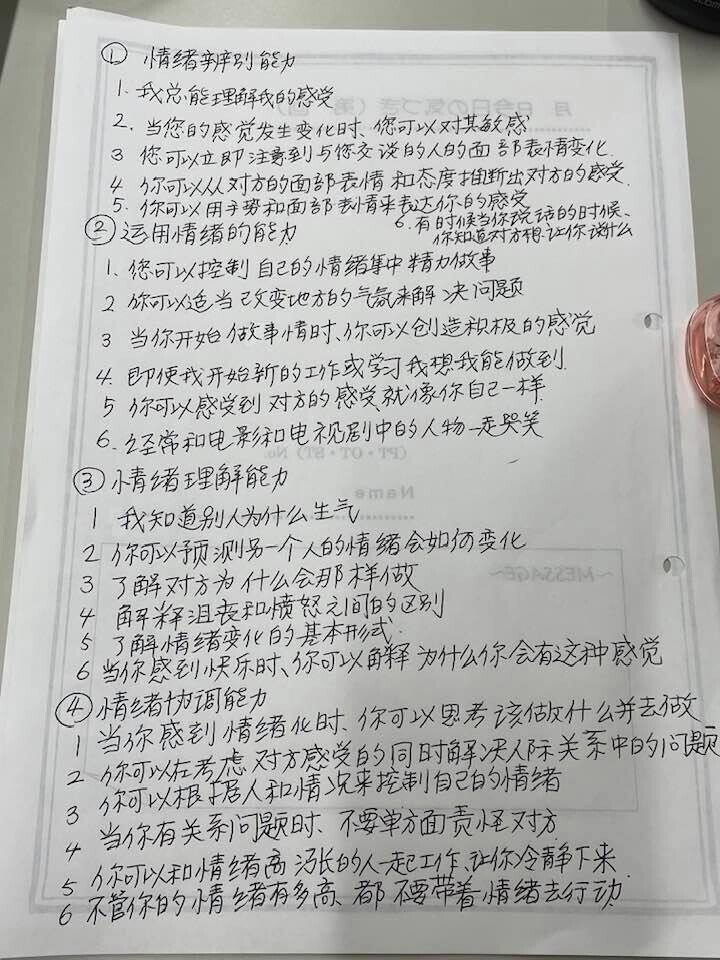 ① 情绪辨别能力
1. 我总能理解我的感受
2. 当您的感觉发生变化时、您可以对其敏感
3 您可以立即注意到与您交谈的人的面部表情变化.
4 你可以从对方的面部表情和态度推断出对方的感受.
5. 你可以用手势和面部表情来表达你的感受
6. 有时候当你说话的时候、
你知道对方想让你说什么
② 运用情绪的能力
1、您可以控制自己的情绪集中精力做事
2 你可以适当改变地方的气氛来解决问题
3 当你开始做事情时、你可以创造积极的感觉
4. 即使我开始新的工作或学习我想我能做到.
5 你可以感受到对方的感受、就像你自己一样.
6. 经常和电影和电视剧中的人物一起哭笑
(PT・OT・ST) No.
Name
③ 情绪理解能力
1 我知道别人为什么生气
2 你可以预测另一个人的情绪会如何变化
~MESSAGE~
3 了解对方为什么会那样做
4 解释沮丧和愤怒之间的区别
5 了解情绪变化的基本形式.
6 当你感到快乐时、你可以解释为什么你会有这种感觉
④ 情绪协调能力
1 当你感到情绪化时、你可以思考该做什么并去做
2 你可以在考虑对方感受的同时解决人际关系中的问题
3 你可以根据人和情况来控制自己的情绪
4 当你有关系问题时、不要单方面责怪对方
5 你可以和情绪高涨的人一起工作、让你冷静下来.
6 不管你的情绪有多高、都不要带着情绪去行动